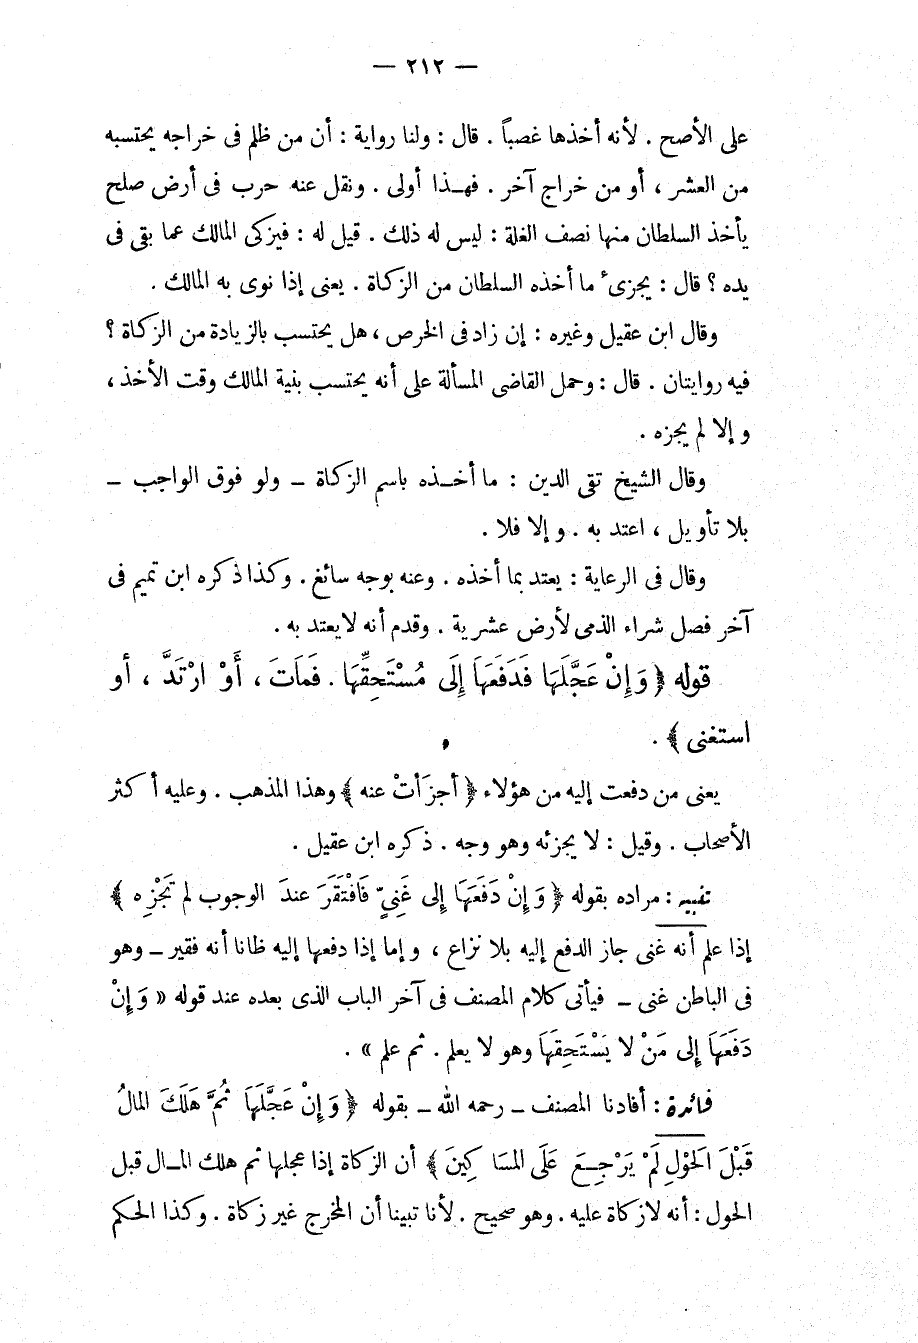 — ٢١٢ —
على الأصح . لأنه أخذها غصباً . قال : ولنا رواية : أن من ظلم فى خراجه يحتسبه
من العشر ، أو من خراج آخر . فهـذا أولى . ونقل عنه حرب فى أرض صلح
يأخذ السلطان منها نصف الغلة : ليس له ذلك . قيل له : فيزكى المالك عما بقى فى
يده ؟ قال : يجزىء ما أخذه السلطان من الزكاة . يعنى إذا نوى به المالك .
وقال ابن عقيل وغيره : إن زاد فى الخرص ، هل يحتسب بالزيادة من الزكاة ؟
فيه روايتان . قال : وحمل القاضى المسألة على أنه يحتسب بنية المالك وقت الأخذ ،
وإلا لم يجزه .
وقال الشيخ تقى الدين : ما أخـذه باسم الزكاة – ولو فوق الواجب –
بلا تأويل ، اعتد به . وإلا فلا .
وقال فى الرعاية : يعتد بما أخذه . وعنه بوجه سائغ . وكذا ذكره ابن تميم فى
آخر فصل شراء الذمى لأرض عشرية . وقدم أنه لا يعتد به .
قوله ﴿ وَإِنْ عَجَّلَهَا فَدَفَعَهَا إِلَى مُسْتَحِقِّهَا . فَمَاتَ ، أَوْ ارْتَدَّ ، أو
استغنى ﴾ .
يعنى من دفعت إليه من هؤلاء ﴿ أجزَأتْ عنه ﴾ وهذا المذهب . وعليه أكثر
الأصحاب . وقيل : لا يجزئه وهو وجه . ذكره ابن عقيل .
تنبيه : مراده بقوله ﴿ وَإِنْ دَفَعَهَا إِلى غَنِيّ فَافْتَقَرَ عندَ الوجوب لم تَجْزِه ﴾
إذا علم أنه غنى جاز الدفع إليه بلا نزاع ، وإما إذا دفعها إليه ظانا أنه فقير – وهو
فى الباطن غنى – فيأتى كلام المصنف فى آخر الباب الذى بعده عند قوله « وَإِنْ
دَفَعَهَا إِلى مَنْ لا يَسْتَحِقهَا وهو لا يعلم . ثم علم » .
فائدة : أفادنا المصنف – رحمه الله – بقوله ﴿ وَإِنْ عَجَّلَهَا ثُمَّ هَلَكَ المالُ
قَبْلَ الحَوْلِ لَمْ يَرْجِـعَ عَلَى المسَا كِينَ ﴾ أن الزكاة إذا عجلها ثم هلك المـال قبل
الحول : أنه لا زكاة عليه . وهو صحيح . لأنا تبينا أن المخرج غير زكاة . وكذا الحـكم